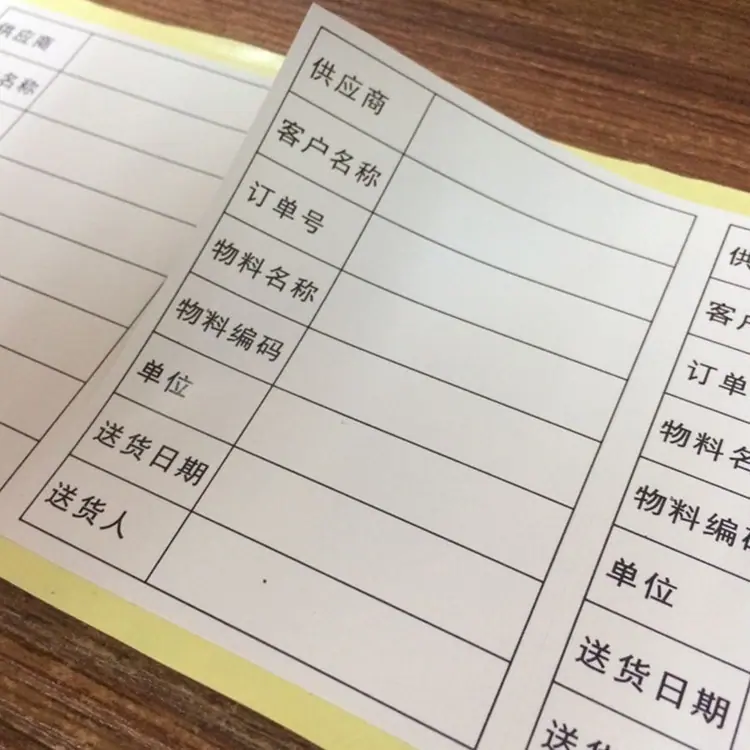 供应商
名称
供应商
客户名称
订单号
物料名称
物料编码
单位
送货日期
送货人
供
客户
订单
物料名
物料编码
单位
送货日期
送货